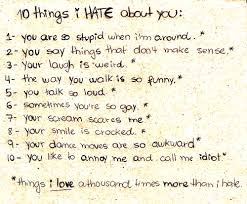 10 things i HATE about you:
1- you are so stupid when i'm around. *
2- you say things that don't make sense. *
3- your laugh is weird. *
4- the way you walk is so funny. *
5- you talk so loud. *
6- sometimes you're so gay. *
7- your scream scares me. *
8- your smile is crocked. *
9- your dance moves are so awkward *
10- you like to annoy me and call me idiot. *
*things i love a thousand times more than i hate.